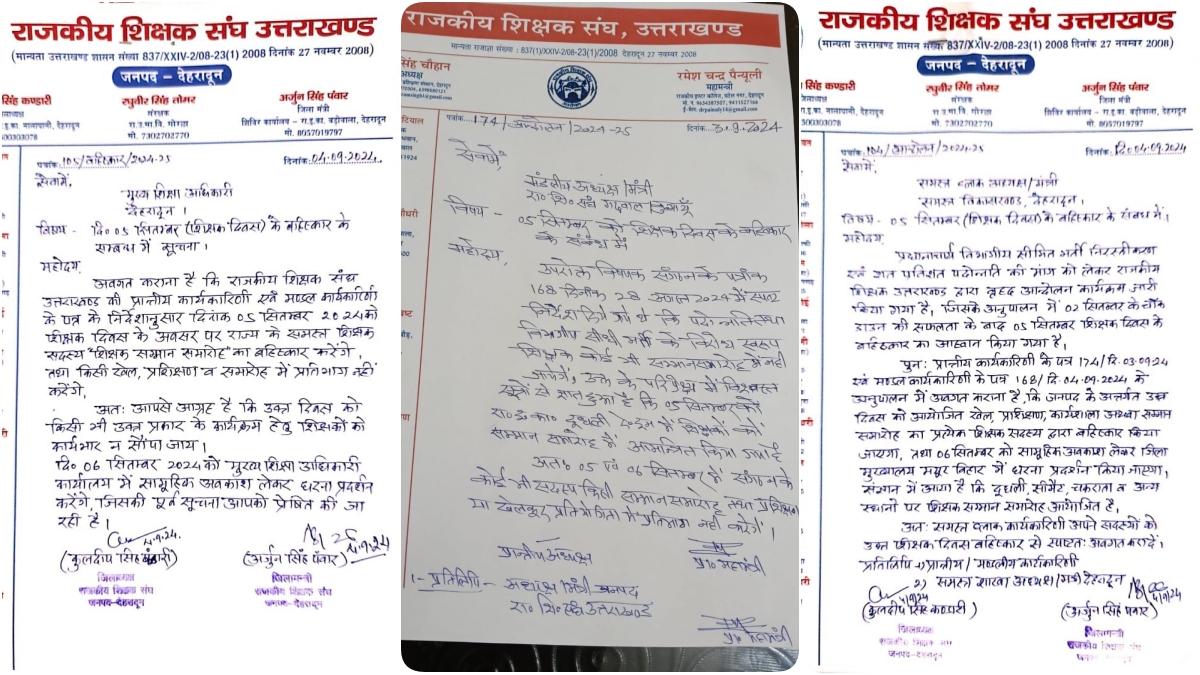 राजकीय शिक्षक संघ उत्तराखण्ड
(मान्यता उत्तराखण्ड शासन संख्या 837/XXIV-2/08-23(1) 2008 दिनांक 27 नवम्बर 2008)
जनपद - देहरादून
सिंह कण्डारी
रघुवीर सिंह तोमर
संरक्षक
रा.उ.मा.वि.
मो. 7302702770
अर्जुन सिंह पंवार
जिला मंत्री
शिविर कार्यालय - रा.इ.का. बड़ोवाला, देहरादून
मो. 8057019797
पत्रांक 105/बहिष्कार/2024-25
दिनांक 04.09.2024
सेवामें,
मुख्य शिक्षा अधिकारी
देहरादून।
विषय - दि० 05 सितम्बर (शिक्षक दिवस) के बहिष्कार के
सम्बन्ध में सूचना।
महोदय,
अवगत कराना है कि राजकीय शिक्षक संघ
उत्तराखण्ड की प्रान्तीय कार्यकारिणी एवं मण्डल कार्यकारिणी
के पत्र के निर्देशानुसार दिनांक 05 सितम्बर 2024 को
शिक्षक दिवस के अवसर पर राज्य के समस्त शिक्षक
सदस्य "शिक्षक सम्मान समारोह" का बहिष्कार करेंगे,
तथा किसी खेल, प्रशिक्षण व समारोह में प्रतिभाग नहीं
करेंगे,
अतः आपसे आग्रह है कि उक्त दिवस को
किसी भी उक्त प्रकार के कार्यक्रम हेतु शिक्षकों को
कार्यभार न सौंपा जाय।
दि० 06 सितम्बर 2024 को मुख्य शिक्षा अधिकारी
कार्यालय में सामूहिक अवकाश लेकर धरना प्रदर्शन
करेंगे, जिसकी पूर्व सूचना आपको प्रेषित की जा
रही है।
4.9.24
(कुलदीप सिंह कण्डारी)
जिलाध्यक्ष
राजकीय शिक्षक संघ
जनपद-देहरादून
(अर्जुन सिंह पंवार)
जिलामन्त्री
राजकीय शिक्षक संघ
जनपद-देहरादून
राजकीय शिक्षक संघ, उत्तराखण्ड
मान्यता राजाज्ञा संख्या : 837(1)/XXIV-2/08-23(1)/2008 देहरादून 27 नवम्बर 2008
सिंह चौहान
अध्यक्ष
रमेश चन्द्र पैन्यूली
महामन्त्री
मो. नं. 9634387507, 9411527166
पत्रांक 174/आन्दोलन/2024-25
दिनांक 3.9.2024
सेवामें,
मंडलीय अध्यक्ष/मंत्री
रा० शि० संघ गढ़वाल/कुमाऊँ
विषय - 05 सितम्बर को शिक्षक दिवस के बहिष्कार
के संबंध में
महोदय,
उपरोक्त विषयक संगठन के पत्रांक
168 दिनांक 28 अगस्त 2024 में स्पष्ट
निर्देश दिये गये थे कि पदोन्नति तथा
विभागीय सीधी भर्ती के विरोध स्वरूप
शिक्षक कोई भी सम्मान समारोह में नहीं
जायेंगे, उक्त के परिप्रेक्ष्य में विश्वस्त
सूत्रों से ज्ञात हुआ है कि 05 सितम्बर को
रा० इ० का० दूधली दे०दून में शिक्षकों को
सम्मान समारोह में आमन्त्रित किया गया है
अतः 05 एवं 06 सितम्बर में संगठन के
कोई भी सदस्य किसी सम्मान समारोह तथा प्रशिक्षण
या खेलकूद प्रतियोगिता में प्रतिभाग नहीं करेंगे।
प्रान्तीय अध्यक्ष
प्रा० महामंत्री
1- प्रतिलिपि - अध्यक्ष/मंत्री जनपद
रा० शि० संघ उत्तराखण्ड
प्रा० महामंत्री
राजकीय शिक्षक संघ उत्तराखण्ड
(मान्यता उत्तराखण्ड शासन संख्या 837/XXIV-2/08-23(1) 2008 दिनांक 27 नवम्बर 2008)
जनपद - देहरादून
सिंह कण्डारी
रघुवीर सिंह तोमर
संरक्षक
रा.उ.मा.वि.
मो. 7302702770
अर्जुन सिंह पंवार
जिला मंत्री
शिविर कार्यालय - रा.इ.का. बड़ोवाला, देहरादून
मो. 8057019797
पत्रांक 104/आन्दोलन/2024-25
दिनांक दि० 04.09.2024
सेवामें,
समस्त ब्लाक अध्यक्ष/मंत्री
समस्त विकासखण्ड, देहरादून।
विषय - 05 सितम्बर (शिक्षक दिवस) के बहिष्कार के संबंध में।
महोदय,
प्रधानाचार्य विभागीय सीमित भर्ती निरस्तीकरण
एवं शत प्रतिशत पदोन्नति की मांग को लेकर राजकीय
शिक्षक उत्तराखण्ड द्वारा वृहद आन्दोलन कार्यक्रम जारी
किया गया है, जिसके अनुपालन में 02 सितम्बर के चॉक
डाउन की सफलता के बाद 05 सितम्बर शिक्षक दिवस के
बहिष्कार का आह्वान किया गया है।
पुनः प्रान्तीय कार्यकारिणी के पत्र 174/दि.03.09.24
एवं मण्डल कार्यकारिणी के पत्र 168/दि.04.09.2024 के
अनुपालन में अवगत कराना है, कि जनपद के अन्तर्गत उक्त
दिवस को आयोजित खेल, प्रशिक्षण, कार्यशाला अथवा सम्मान
समारोह का प्रत्येक शिक्षक सदस्य द्वारा बहिष्कार किया
जाएगा, तथा 06 सितम्बर को सामूहिक अवकाश लेकर जिला
मुख्यालय मयूर विहार में धरना प्रदर्शन किया जाएगा,
संज्ञान में आया है कि दूधली, सौंग, चकराता व अन्य
स्थानों पर शिक्षक सम्मान समारोह आयोजित है,
अतः समस्त ब्लाक कार्यकारिणी अपने सदस्यों को
उक्त शिक्षक दिवस बहिष्कार से स्पष्टतः अवगत करा दें।
प्रतिलिपि 1) प्रान्तीय/मण्डलीय कार्यकारिणी
2) समस्त शाखा अध्यक्ष/मंत्री देहरादून
4/9/24
(कुलदीप सिंह कण्डारी)
जिलाध्यक्ष
राजकीय शिक्षक संघ
जनपद-देहरादून
(अर्जुन सिंह पंवार)
जिलामन्त्री
राजकीय शिक्षक संघ
जनपद-देहरादून